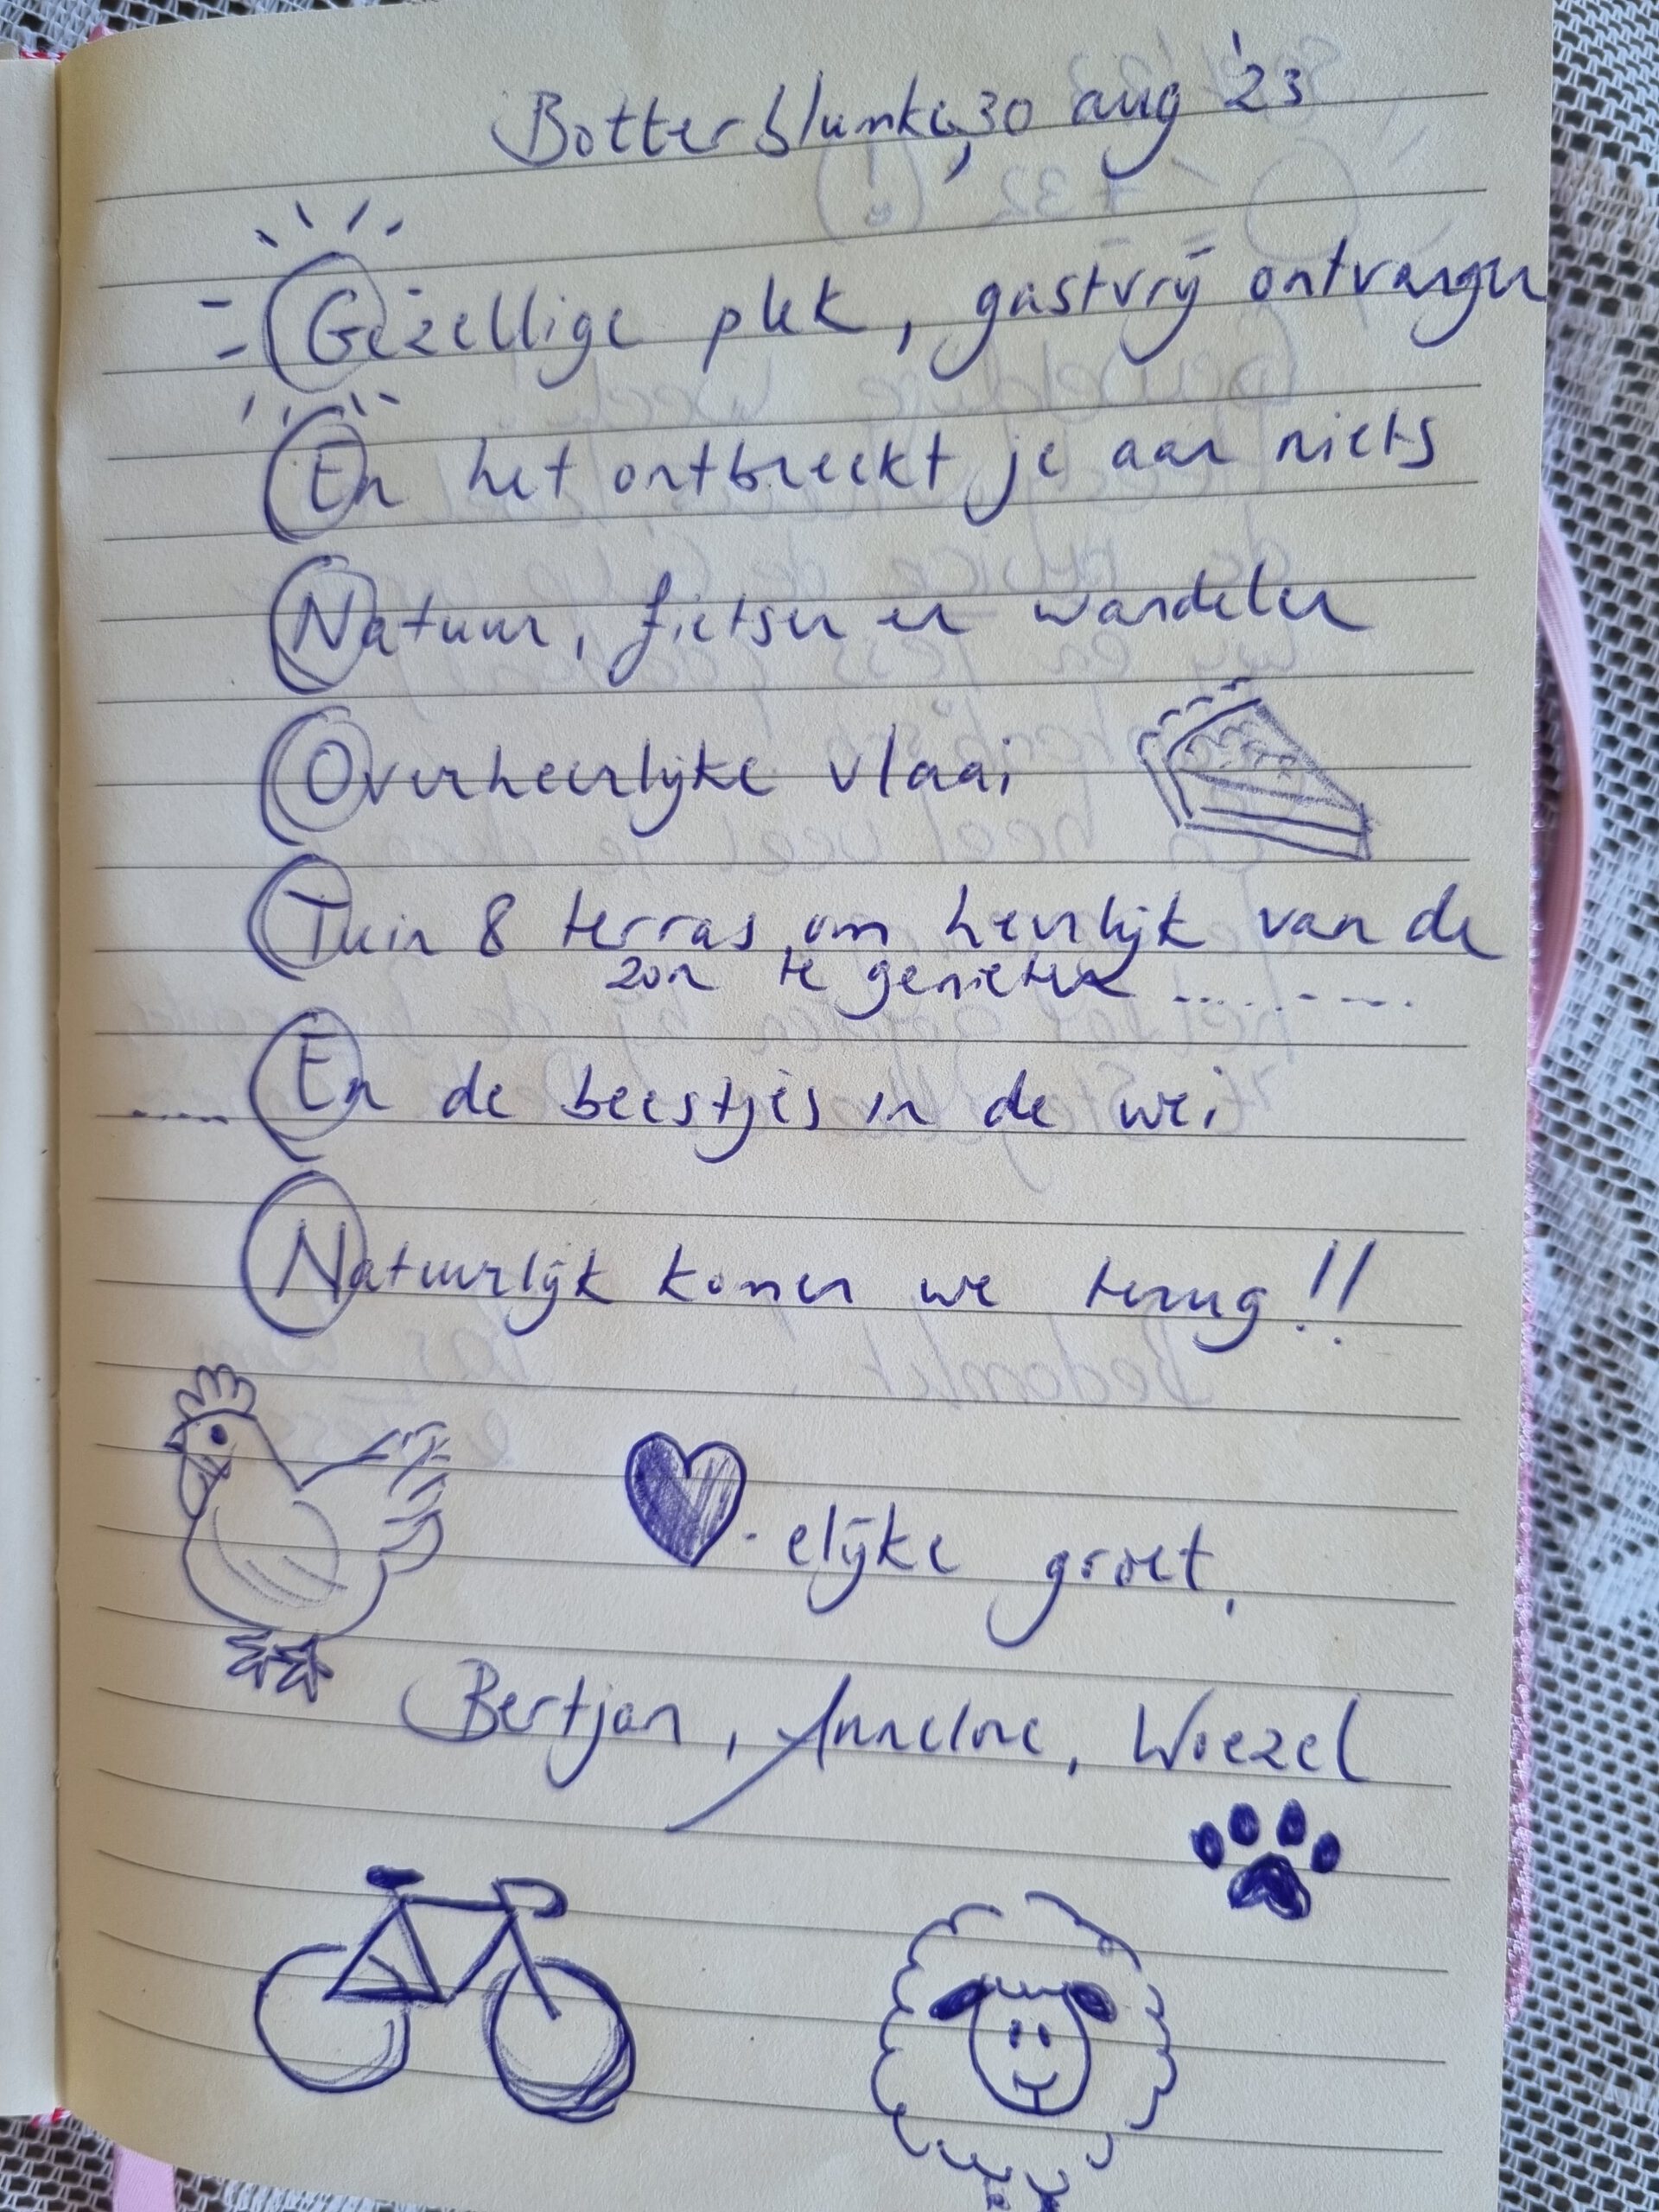 Botterblumke, 30 aug '23
Gezellige plek, gastvrij ontvangen
En het ontbreekt je aan niets
Natuur, fietsen en wandelen
Overheerlijke vlaai
Tuin & terras om heerlijk van de
zon te genieten .........
..... En de beestjes in de wei
Natuurlijk komen we terug!!
-elijke groet,
Bertjan, Annelore, Woezel